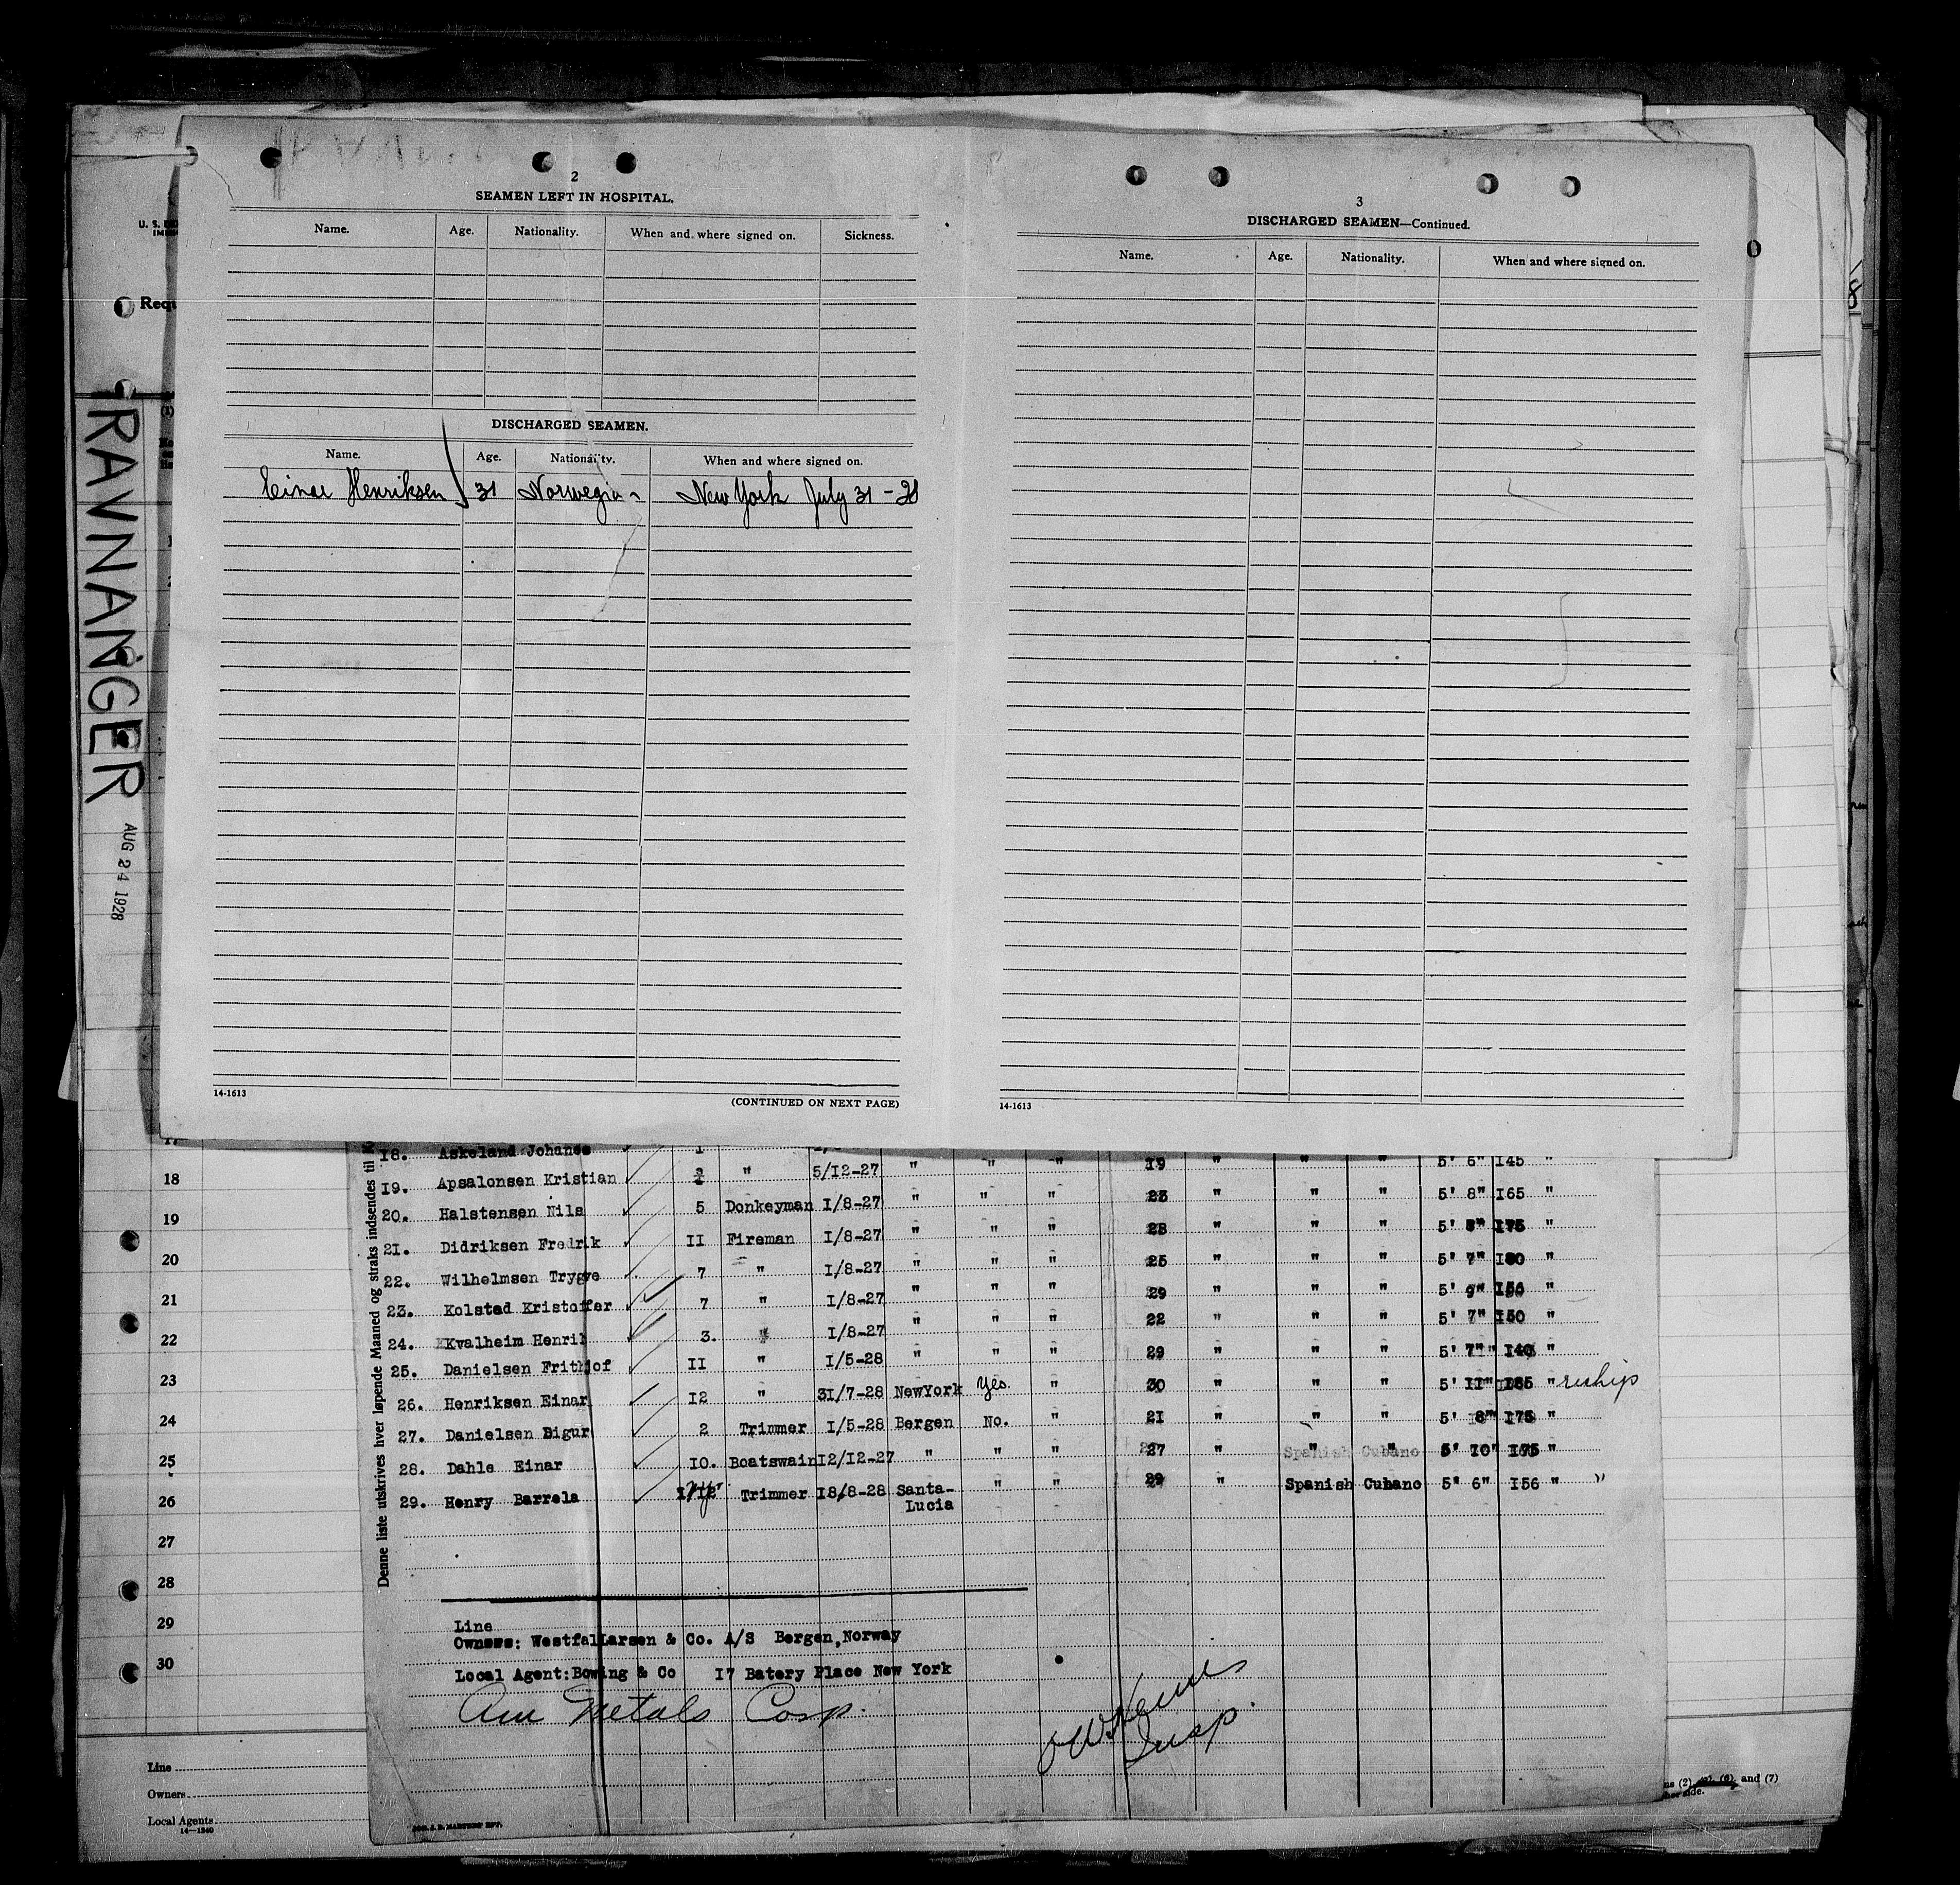 RAVNANGER
AUG 24 1928
2
SEAMEN LEFT IN HOSPITAL.
Name. Age. Nationality. When and where signed on. Sickness.
DISCHARGED SEAMEN.
Name. Age. Nationality. When and where signed on.
Einar Henriksen 31 Norwegian New York July 31 - 28
14-1613
(CONTINUED ON NEXT PAGE)
3
DISCHARGED SEAMEN—Continued.
Name. Age. Nationality. When and where signed on.
14-1613
U. S.
Requ
Denne liste utskrives hver løpende Maaned og straks indsendes til
18. Askeland Johannes 1 19 " " " 5' 6" I45 "
19. Apsalonsen Kristian " 5/12-27 " " " 23 " " " 5' 8" I65 "
20. Halstensen Nils 5 Donkeyman I/8-27 " " " 28 " " " 5' I75 "
21. Didriksen Fredrik II Fireman I/8-27 " " " 25 " " " 5' 7" "
22. Wilhelmsen Trygve 7 " I/8-27 " " " 29 " " " 5' 9" "
23. Kolstad Kristoffer 7 " I/8-27 " " " 22 " " " 5' 7" I50 "
24. Kvalheim Henrik 3. " I/8-27 " " " 29 " " " 5' 7" I40 "
25. Danielsen Frithjof II " I/5-28 " " " 30 " " " 5' II" " reship
26. Henriksen Einar I2 " 31/7-28 NewYork Yes. " 21 " " " 5' 8" I75 "
27. Danielsen Sigur 2 Trimmer I/5-28 Bergen No. " 27 " " " 5' I0" "
28. Dahle Einar I0. Boatswain I2/I2-27 " " " 29 " Spanish Cubano 5" 6" I56 " "
29. Henry Barrela Trimmer I8/8-28 Santa-
Lucia " "
17
18
19
20
21
22
23
24
25
26
27
28
29
30
Line
Owners: Westfal Larsen & Co. A/S Bergen, Norway
Local Agent: Bowing & Co I7 Batery Place New York
Am Metals Corp.
Insp.
Line
Owners
Local Agents
14-1240
(2), (6), and (7)